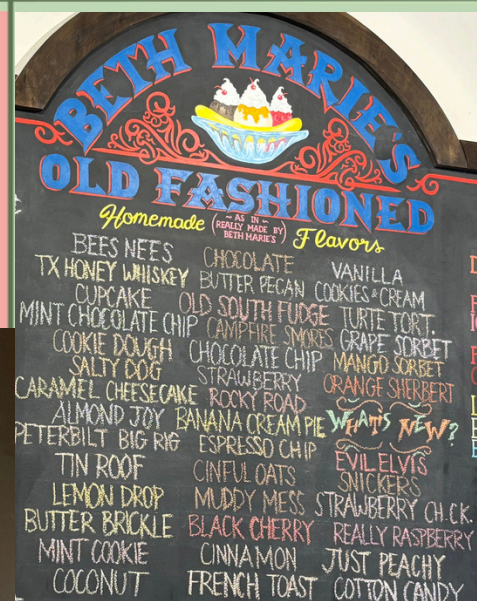 BETH MARIE'S
OLD FASHIONED
Homemade (~ AS IN ~ REALLY MADE BY BETH MARIE'S) Flavors
BEES NEES
TX HONEY WHISKEY
CUPCAKE
MINT CHOCOLATE CHIP
COOKIE DOUGH
SALTY DOG
CARAMEL CHEESECAKE
ALMOND JOY
PETERBILT BIG RIG
TIN ROOF
LEMON DROP
BUTTER BRICKLE
MINT COOKIE
COCONUT
CHOCOLATE
BUTTER PECAN
OLD SOUTH FUDGE
CAMPFIRE SMORES
CHOCOLATE CHIP
STRAWBERRY
ROCKY ROAD
BANANA CREAM PIE
ESPRESSO CHIP
CINFUL OATS
MUDDY MESS
BLACK CHERRY
CINNAMON
FRENCH TOAST
VANILLA
COOKIES & CREAM
TURTE TORT.
GRAPE SORBET
MANGO SORBET
ORANGE SHERBERT
WHAT'S NEW?
EVIL ELVIS
SNICKERS
STRAWBERRY CH.CK.
REALLY RASPBERRY
JUST PEACHY
COTTON CANDY